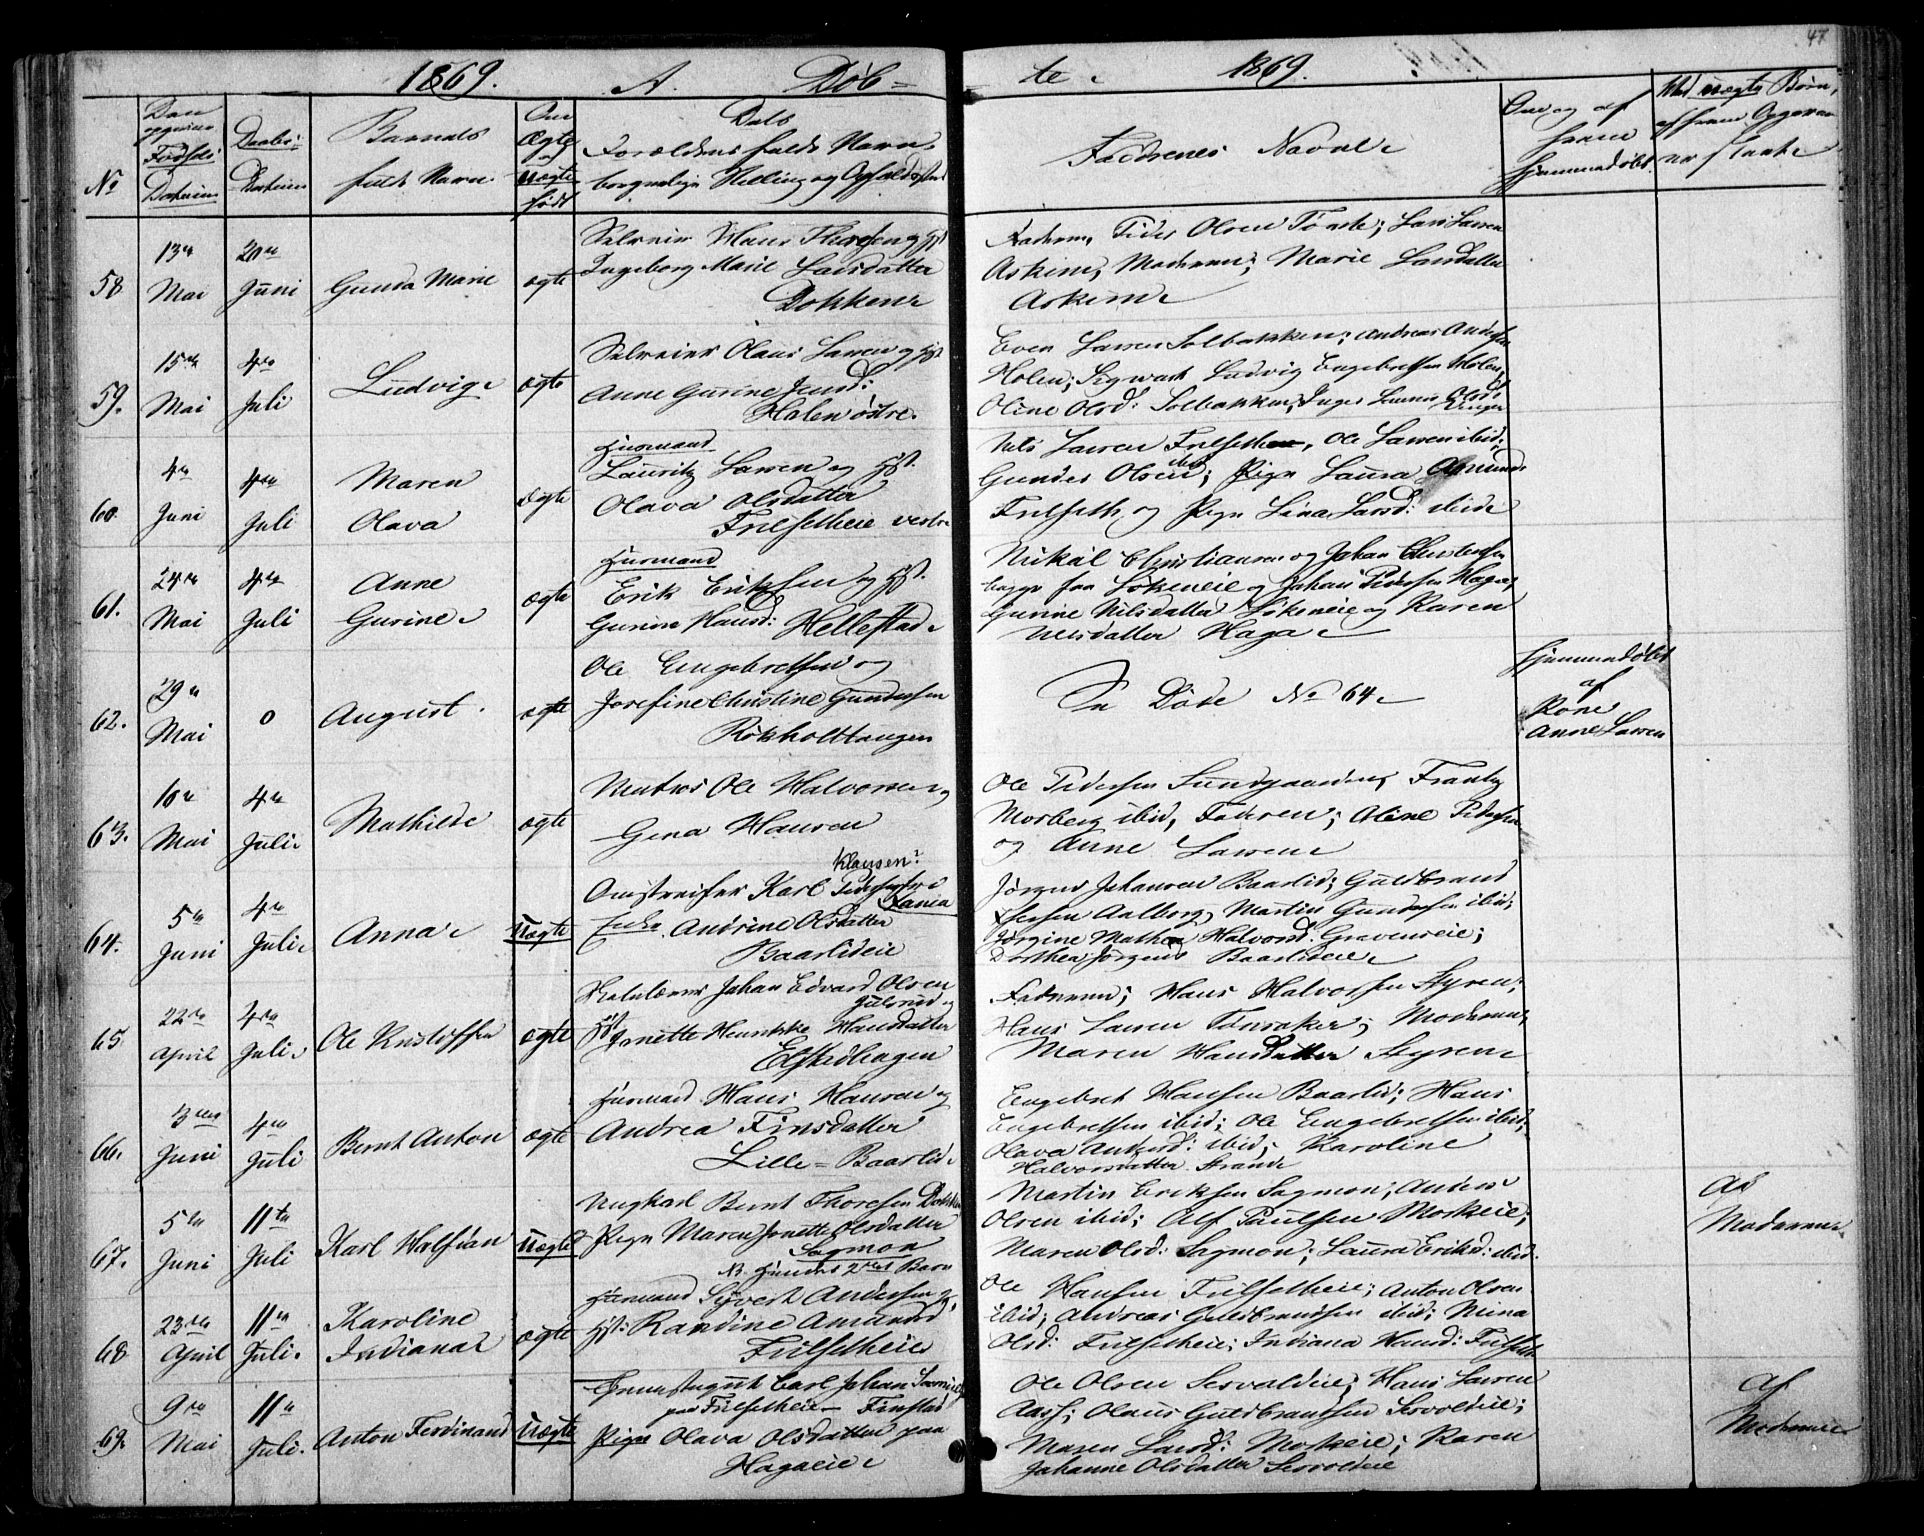 47
1869. A. Døb= te. 1869.
No
Den opgivne Fødsels Datum
Daabs Datum
Barnets fulde Navn
Om Ægte og uægte født
Dets Forældres fulde Navne borgerlige Stilling og Opholdssted
Faddernes Navne
Om og af hvem hjemmedøbt
Med uægte Børn, af hvem Opgaven er skeet
58 13de Mai 20de Juni Gunda Marie ægte
Selveier Hans Thoresen og Hst
Ingeborg Marie Larsdatter
Dokken
Faderen, Peder Olsen Lars Larsen
Askim, Moderen; Marie Larsdatter
Askim
59. 15de Mai 4de Juli Ludvig ægte
Selveier Olaus Larsen og Hst
Anne Gurine Jensd:
Holen østre.
Even Larsen Solbakken; Andreas Andersen
Holen; Sigwart Ludvig Engebretsen Holen,
Oline Olsd: Solbakken, Inger Olsd:
60. 4de Juni 4de Juli Maren Olava ægte
Husmand
Lauritz Larsen og Hst.
Olava Olsdatter
Frilsetheie vestre
Nils Larsen Frilseth, Ole Larsen ibid;
Gunder Olsen ibid; Pige Laura
Frilseth og Pige Lina Larsd: ibid
61. 24de Mai 4de Juli Anne Gurine ægte
Husmand
Erik Eriksen og Hst.
Gurine Hansd: Hellestad
Nikal Christiansen og Johan Christensen
begge fra Løkeneie og Johan Pedersen Haga,
Gunine Nilsdatter Løkeneie og Karen
Nilsdatter Haga
62. 29de Mai 0 August. ægte
Ole Engebretsen og
Josefine Christine Gundersen
Rökholttangen
Se Døde No 64.
Hjemmedøbt
af
Kone
Anne Larsen
63. 10de Mai 4de Juli Mathilde ægte
Matros Ole Halvorsen og
Gena Hansen
Ole Pedersen Sundgaarden, Frantz
Morberg ibid, Faderen; Oline Pedersen
og Anne Larsen
64. 5te Juni 4de Juli Anna uægte
Klausen?
Omstreifer Karl Pedersen
Fania
Enke Andrine Olsdatter
Baarlideie
Jørgen Johansen Baarlid; Guldbrand
Iversen Aalborg, Martin Gundersen ibid;
Jørgine Mathea Halvorsd. Gravenseie;
Dorthea Jørgensd Baarlideie
65. 22de April 4de Juli Ole Kristoffer ægte
Johan Edvard Olsen
Julsrud og
Hst Jonette Henrikke Hansdatter
Elstedhagen
Faderen; Hans Halvorsen Styren;
Hans Larsen Tønsaker; Moderen,
Maren Hansdatter Styren
66. 3die Juni 4de Juli Bernt Anton ægte
Husmand Hans Hansen og
Andrea Finsdatter
Lille=Baarlid
Engebret Hansen Baarlid; Hans
Engebretsen ibid; Ole Engebretsen ibid;
Olava Andersd: ibid; Karoline
Halvorsdatter Strand
67. 5te Juni 11te Juli Karl Walfrian uægte
Ungkarl Bernt Thoresen Dokken
Pige Maren Jonette Olsdatter
Sagmon
NB. Hendes 2det Barn
Martin Eriksen Sagmon; Anders
Olsen ibid; Alf Paulsen Moskeie;
Maren Olsd: Sagmon; Laura Eriksd: ibid.
Af
Moderen
68 23de April 11te Juli. Karoline Indiana ægte
Husmand Syvert Andersen og
Hst: Randine Amundsd
Frilsetheie
Ole Hansen Frilsetheie; Anton Olsen
ibid; Andreas Guldbrandsen ibid; Mina
Olsd: Frilsetheie; Indiana Hansd: Frilseth
69. 9de Mai 11te Juli. Anton Ferdinand uægte
Carl Johan
paa Frilsetheie Finstad
Pige Olava Olsdatter paa
Hagaeie
Ole Olsen Servoldeie; Hans Larsen
Aass; Olaus Guldbrandsen Servoldeie;
Maren Larsd: Moskeie; Karen
Johanne Olsdatter Servoldeie
Af
Moderen